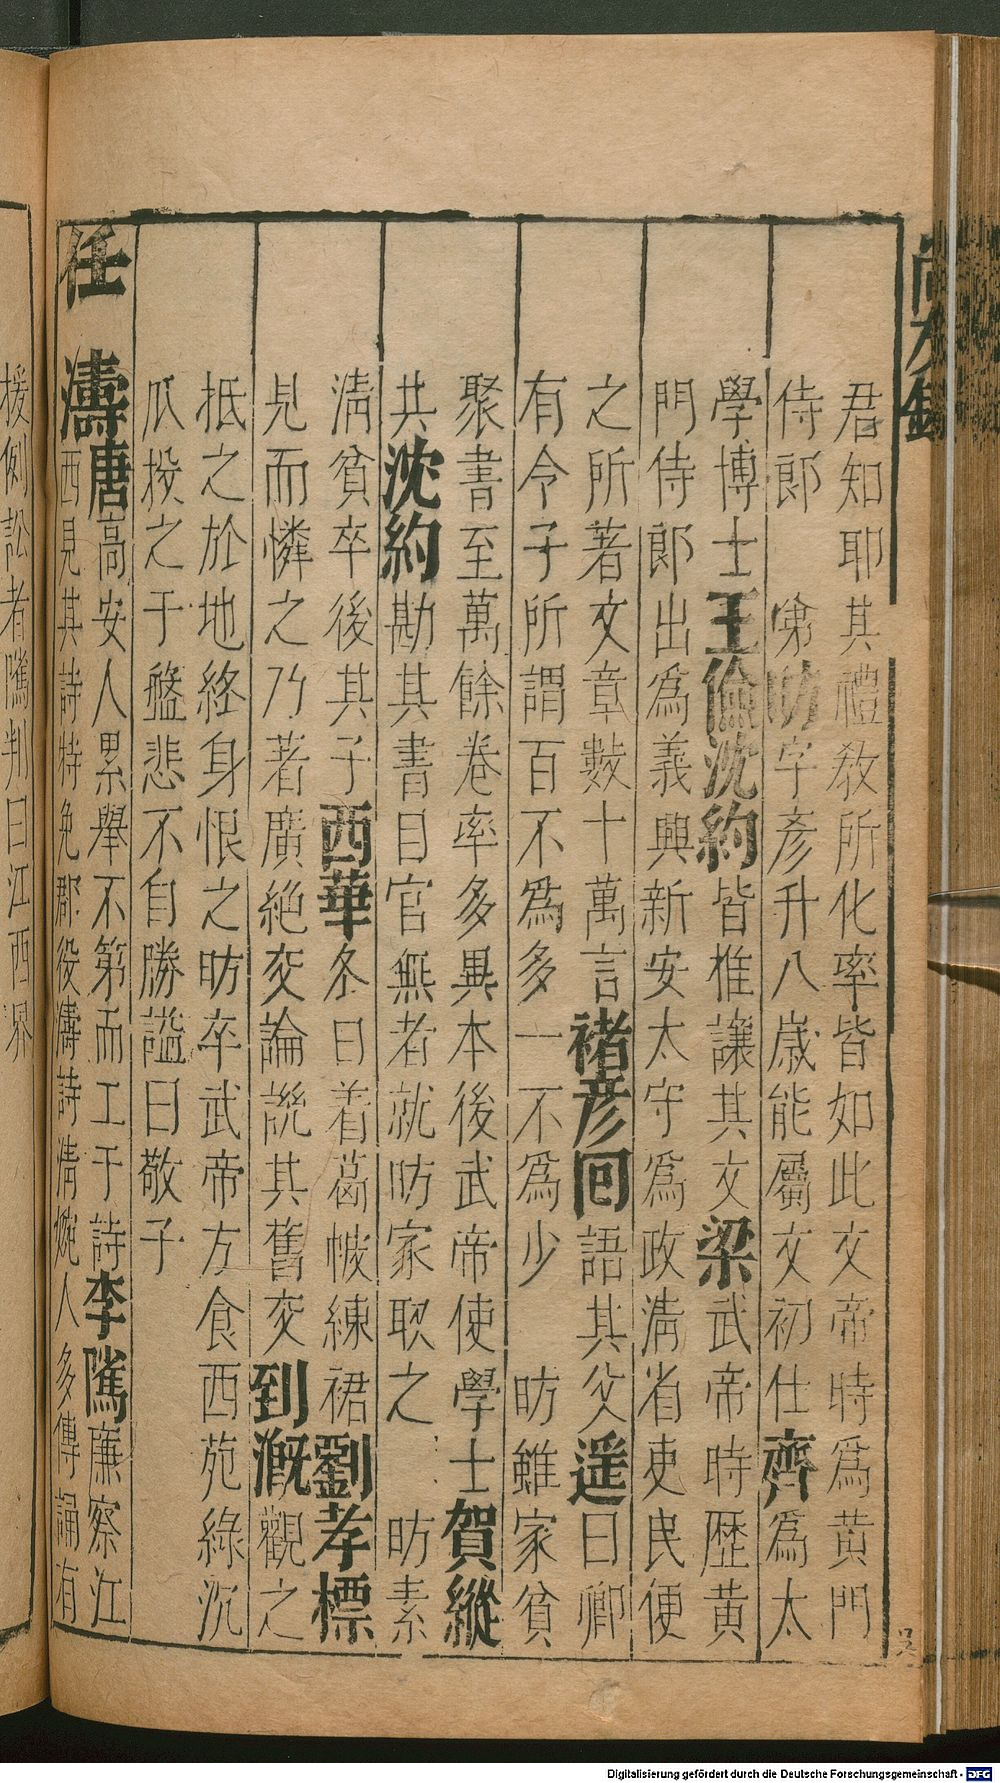 君知耶其禮教所化率皆如此文帝時爲黄門
侍郎 弟昉字彥升八歳能屬文初仕齊爲太
學博士王儉沈約皆推讓其文梁武帝時歷黄
門侍郎出爲義興新安太守爲政淸省吏民便
之所著文章數十萬言褚彦回語其父遥曰卿
有令子所謂百不爲多一不爲少 昉雖家貧
聚書至萬餘卷率多異本後武帝使學士賀縱
共沈約勘其書目官無者就昉家取之 昉素
淸貧卒後其子西華冬日着葛帔練裙劉孝標
見而憐之乃著廣絶交論説其舊交到漑觀之
抵之於地終身恨之昉卒武帝方食西苑綠沉
瓜投之于盤悲不自勝謚曰敬子
任 濤唐高安人累舉不第而工于詩李隲廉察江
西見其詩特免郡役濤詩淸婉人多傳誦有
援例訟者隲判曰江西界
Digitalisierung gefördert durch die Deutsche Forschungsgemeinschaft - DFG